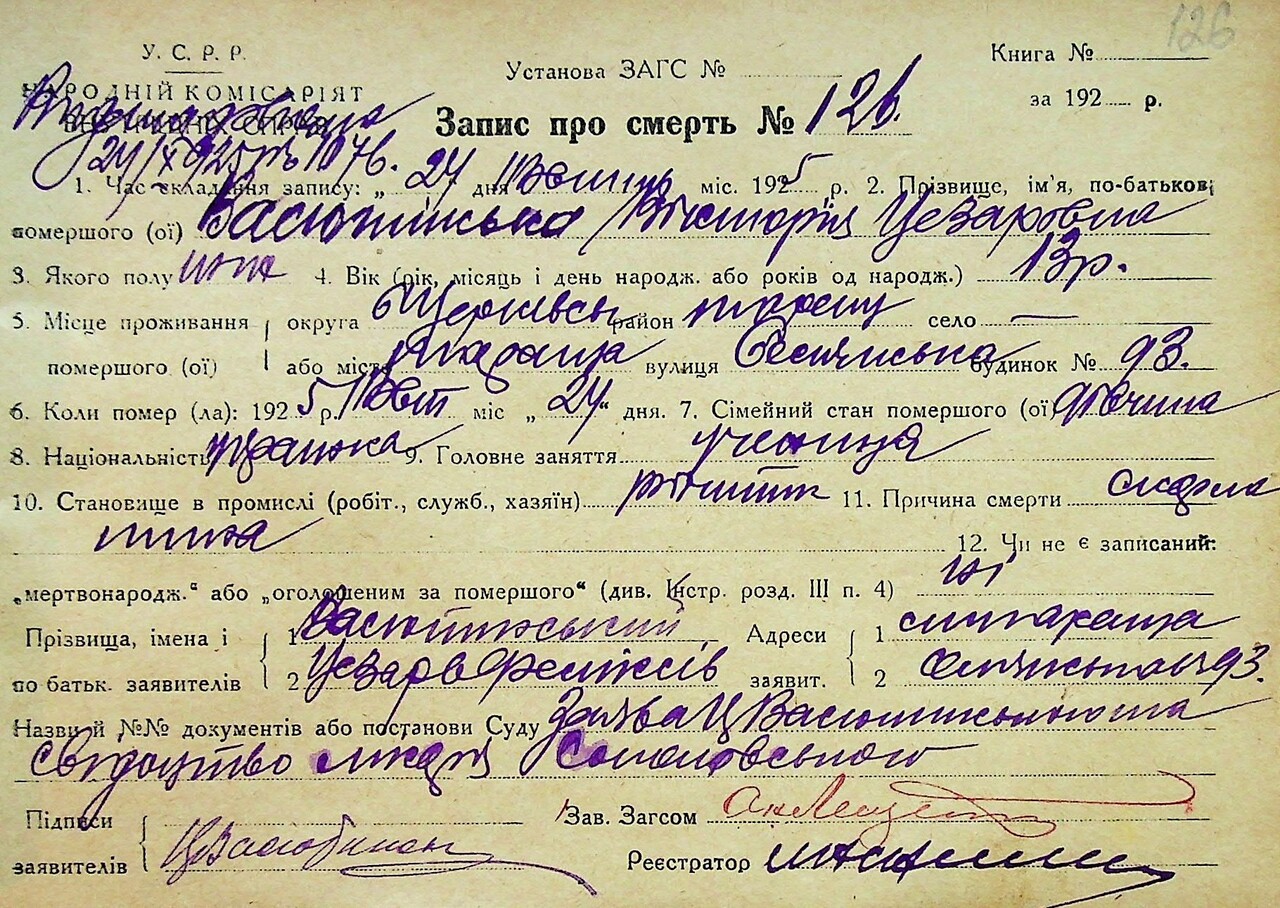 126
У. С. Р. Р.
Установа ЗАГС № Книга №
НАРОДНІЙ КОМІСАРІЯТ
за 192 р.
Запис про смерть № 126.
24/IX 925 р № 1076.
1. Час складення запису: „ 24 дня місяць міс. 1925 р. 2. Прізвище, ім'я, по-батькові
помершого (ої) Васютінська Вікторія Цезаровна
3. Якого полу жін 4. Вік (рік, місяць і день народж. або років од народж.) 13 р.
5. Місце проживання округа Б Церківськ район таращ село —
помершого (ої) або місто Тараща вулиця будинок № 93.
6. Коли помер (ла): 1925 р. міс „ 24 " дня. 7. Сімейний стан помершого (ої) дівчина
8. Національність українка 9. Головне заняття учениця
10. Становище в промислі (робіт., служб., хазяїн) 11. Причина смерти скарла
тина 12. Чи не є записаний:
„мертвонародж." або „оголошеним за помершого" (див. Інстр. розд. III п. 4) ні
Прізвища, імена і 1 Васютинський Адреси 1 тараща
по батьк. заявителів 2 Цезар Феліксів заявит. 2 93.
Назви й №№ документів або постанови Суду Заява Ц Васютинського та
свідоцтво лікаря
Підписи Зав. Загсом
заявителів Реєстратор